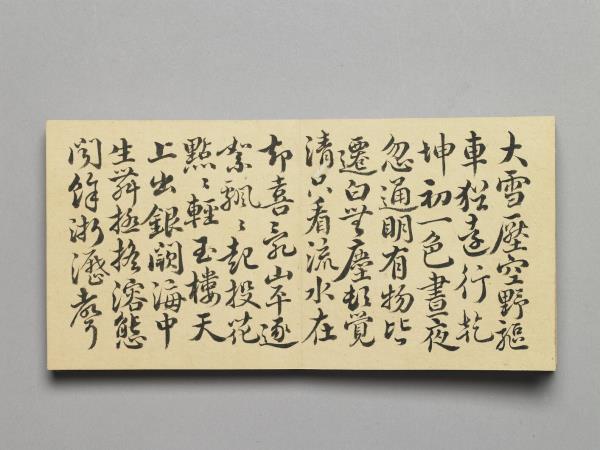 大雪壓空野驅
車猶遠行乾
坤初一色晝夜
忽通明有物皆
遷白無塵頓覺
清只看流水在
却喜亂山平逐
絮飄〻起投花
點〻輕玉樓天
上出銀闕海中
生舞極搖溶態
聞餘淅瀝聲